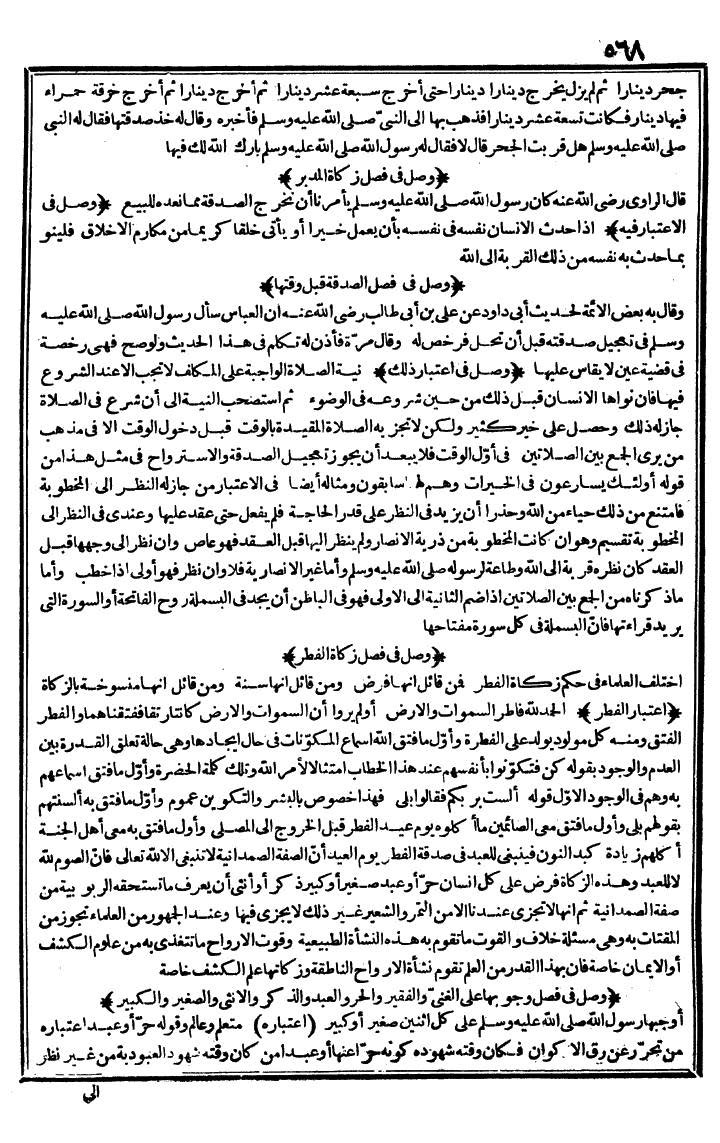 ٥٦٨
جحر دينارا ثم لم يزل يخرج دينارا دينارا حتى أخرج سبعة عشر دينارا ثم أخرج دينارا ثم أخرج خرقة حمراء
فيها دينار فكانت تسعة عشر دينارا فذهب بها الى النبيّ صلى الله عليه وسلم فأخبره وقال له خذ صدقتها فقال له النبي
صلى الله عليه وسلم هل قربت الجحر قال لا فقال له رسول الله صلى الله عليه وسلم بارك الله لك فيها
﴿وصل فى فصل زكاة المدبر﴾
قال الراوى رضى الله عنه كان رسول الله صلى الله عليه وسلم يأمرنا أن نخرج الصدقة مما نعده للبيع ﴿وصل فى
الاعتبار فيه﴾ اذا حدث الانسان نفسه فى نفسه بأن يعمل خيرا أو يأتى خلقا كريما من مكارم الاخلاق فلينو
بما حدث به نفسه من ذلك القربة الى الله
﴿وصل فى فصل الصدقة قبل وقتها﴾
وقال به بعض الائمة لحديث أبى داود عن على بن أبى طالب رضى الله عنه ان العباس سأل رسول الله صلى الله عليه
وسلم فى تعجيل صدقته قبل أن تحل فرخص له وقال مرّة فأذن له تكلم فى هذا الحديث ولو صح فهى رخصة
فى قضية عين لا يقاس عليها ﴿وصل فى اعتبار ذلك﴾ نية الصلاة الواجبة على المكلف لا تجب الا عند الشروع
فيها فان نواها الانسان قبل ذلك من حين شروعه فى الوضوء ثم استصحب النية الى أن شرع فى الصلاة
جاز له ذلك وحصل على خير كثير ولكن لا تجزيه الصلاة المقيدة بالوقت قبل دخول الوقت الا فى مذهب
من يرى الجمع بين الصلاتين فى أوّل الوقت فلا يبعد أن يجوز تعجيل الصدقة والاسترواح فى مثل هذا من
قوله أولئك يسارعون فى الخيرات وهم لها سابقون ومثاله أيضا فى الاعتبار من جاز له النظر الى المخطوبة
فامتنع من ذلك حياء من الله وحذرا أن يزيد فى النظر على قدر الحاجة فلم يفعل حتى عقد عليها وعندى فى النظر الى
المخطوبة تقسيم وهو ان كانت المخطوبة من ذرية الانصار ولم ينظر اليها قبل العقد فهو عاص وان نظر الى وجهها قبل
العقد كان نظره قربة الى الله وطاعة لرسوله صلى الله عليه وسلم وأما غير الانصارية فلا وان نظر فهو أولى اذا خطب وأما
ما ذكرناه من الجمع بين الصلاتين اذا ضم الثانية الى الاولى فهو فى الباطن أن يجد فى البسملة روح الفاتحة أو السورة التى
يريد قراءتها فانّ البسملة فى كل سورة مفتاحها
﴿وصل فى فصل زكاة الفطر﴾
اختلف العلماء فى حكم زكاة الفطر فمن قائل انها فرض ومن قائل انها سنة ومن قائل انها منسوخة بالزكاة
﴿اعتبار الفطر﴾ الحمد لله فاطر السموات والارض أولم يروا أن السموات والارض كانتا رتقا ففتقناهما والفطر
الفتق ومنه كل مولود يولد على الفطرة وأوّل ما فتق الله اسماع المكوّنات فى حال ايجادها وهى حالة تعلق القدرة بين
العدم والوجود بقوله كن فتكوّنوا بأنفسهم عند هذا الخطاب امتثالا لأمر الله وتلك كلمة الحضرة وأوّل ما فتق اسماعهم
به وهم فى الوجود الاوّل قوله ألست بربكم فقالوا بلى فهذا خصوص بالبشر والتكوين عموم وأوّل ما فتق به ألسنتهم
بقولهم بلى وأول ما فتق معى الصائمين ما أكلوه يوم عيد الفطر قبل الخروج الى المصلى وأول ما فتق به معى أهل الجنة
أكلهم زيادة كبد النون فينبغى للعبد فى صدقة الفطر يوم العيد أنّ الصفة الصمدانية لا تنبغى الا لله تعالى فانّ الصوم لله
لا للعبد وهذه الزكاة فرض على كل انسان حرّ أو عبد صغير أو كبير ذكر أو أنثى أن يعرف ما تستحقه الربوبية من
صفة الصمدانية ثم انها لا تجزى عندنا الا من التمر والشعير غير ذلك لا يجزى فيها وعند الجمهور من العلماء تجوز من
المقتات به وهى مسئلة خلاف والقوت ما تقوم به هذه النشأة الطبيعية وقوت الارواح ما تتغذى به من علوم الكشف
أو الايمان خاصة فان بهذا القدر من العلم تقوم نشأة الارواح الناطقة وزكاتها علم الكشف خاصة
﴿وصل فى فصل وجوبها على الغنىّ والفقير والحر والعبد والذكر والانثى والصغير والكبير﴾
أوجبها رسول الله صلى الله عليه وسلم على كل اثنين صغير أو كبير (اعتباره) متعلم وعالم وقوله حرّ أو عبد اعتباره
من تحرّر عن رق الاكوان فكان وقته شهوده كونه حرّا عنها أو عبدا من كان وقته شهود العبودية من غير نظر
الى